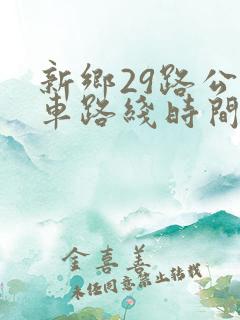 新鄉29路公
車路綫時間
金喜善
未经同意禁止转载